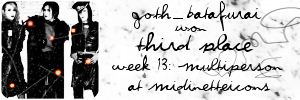 goth_batafurai
won
third place
week 13: multiperson
at midinetteicons